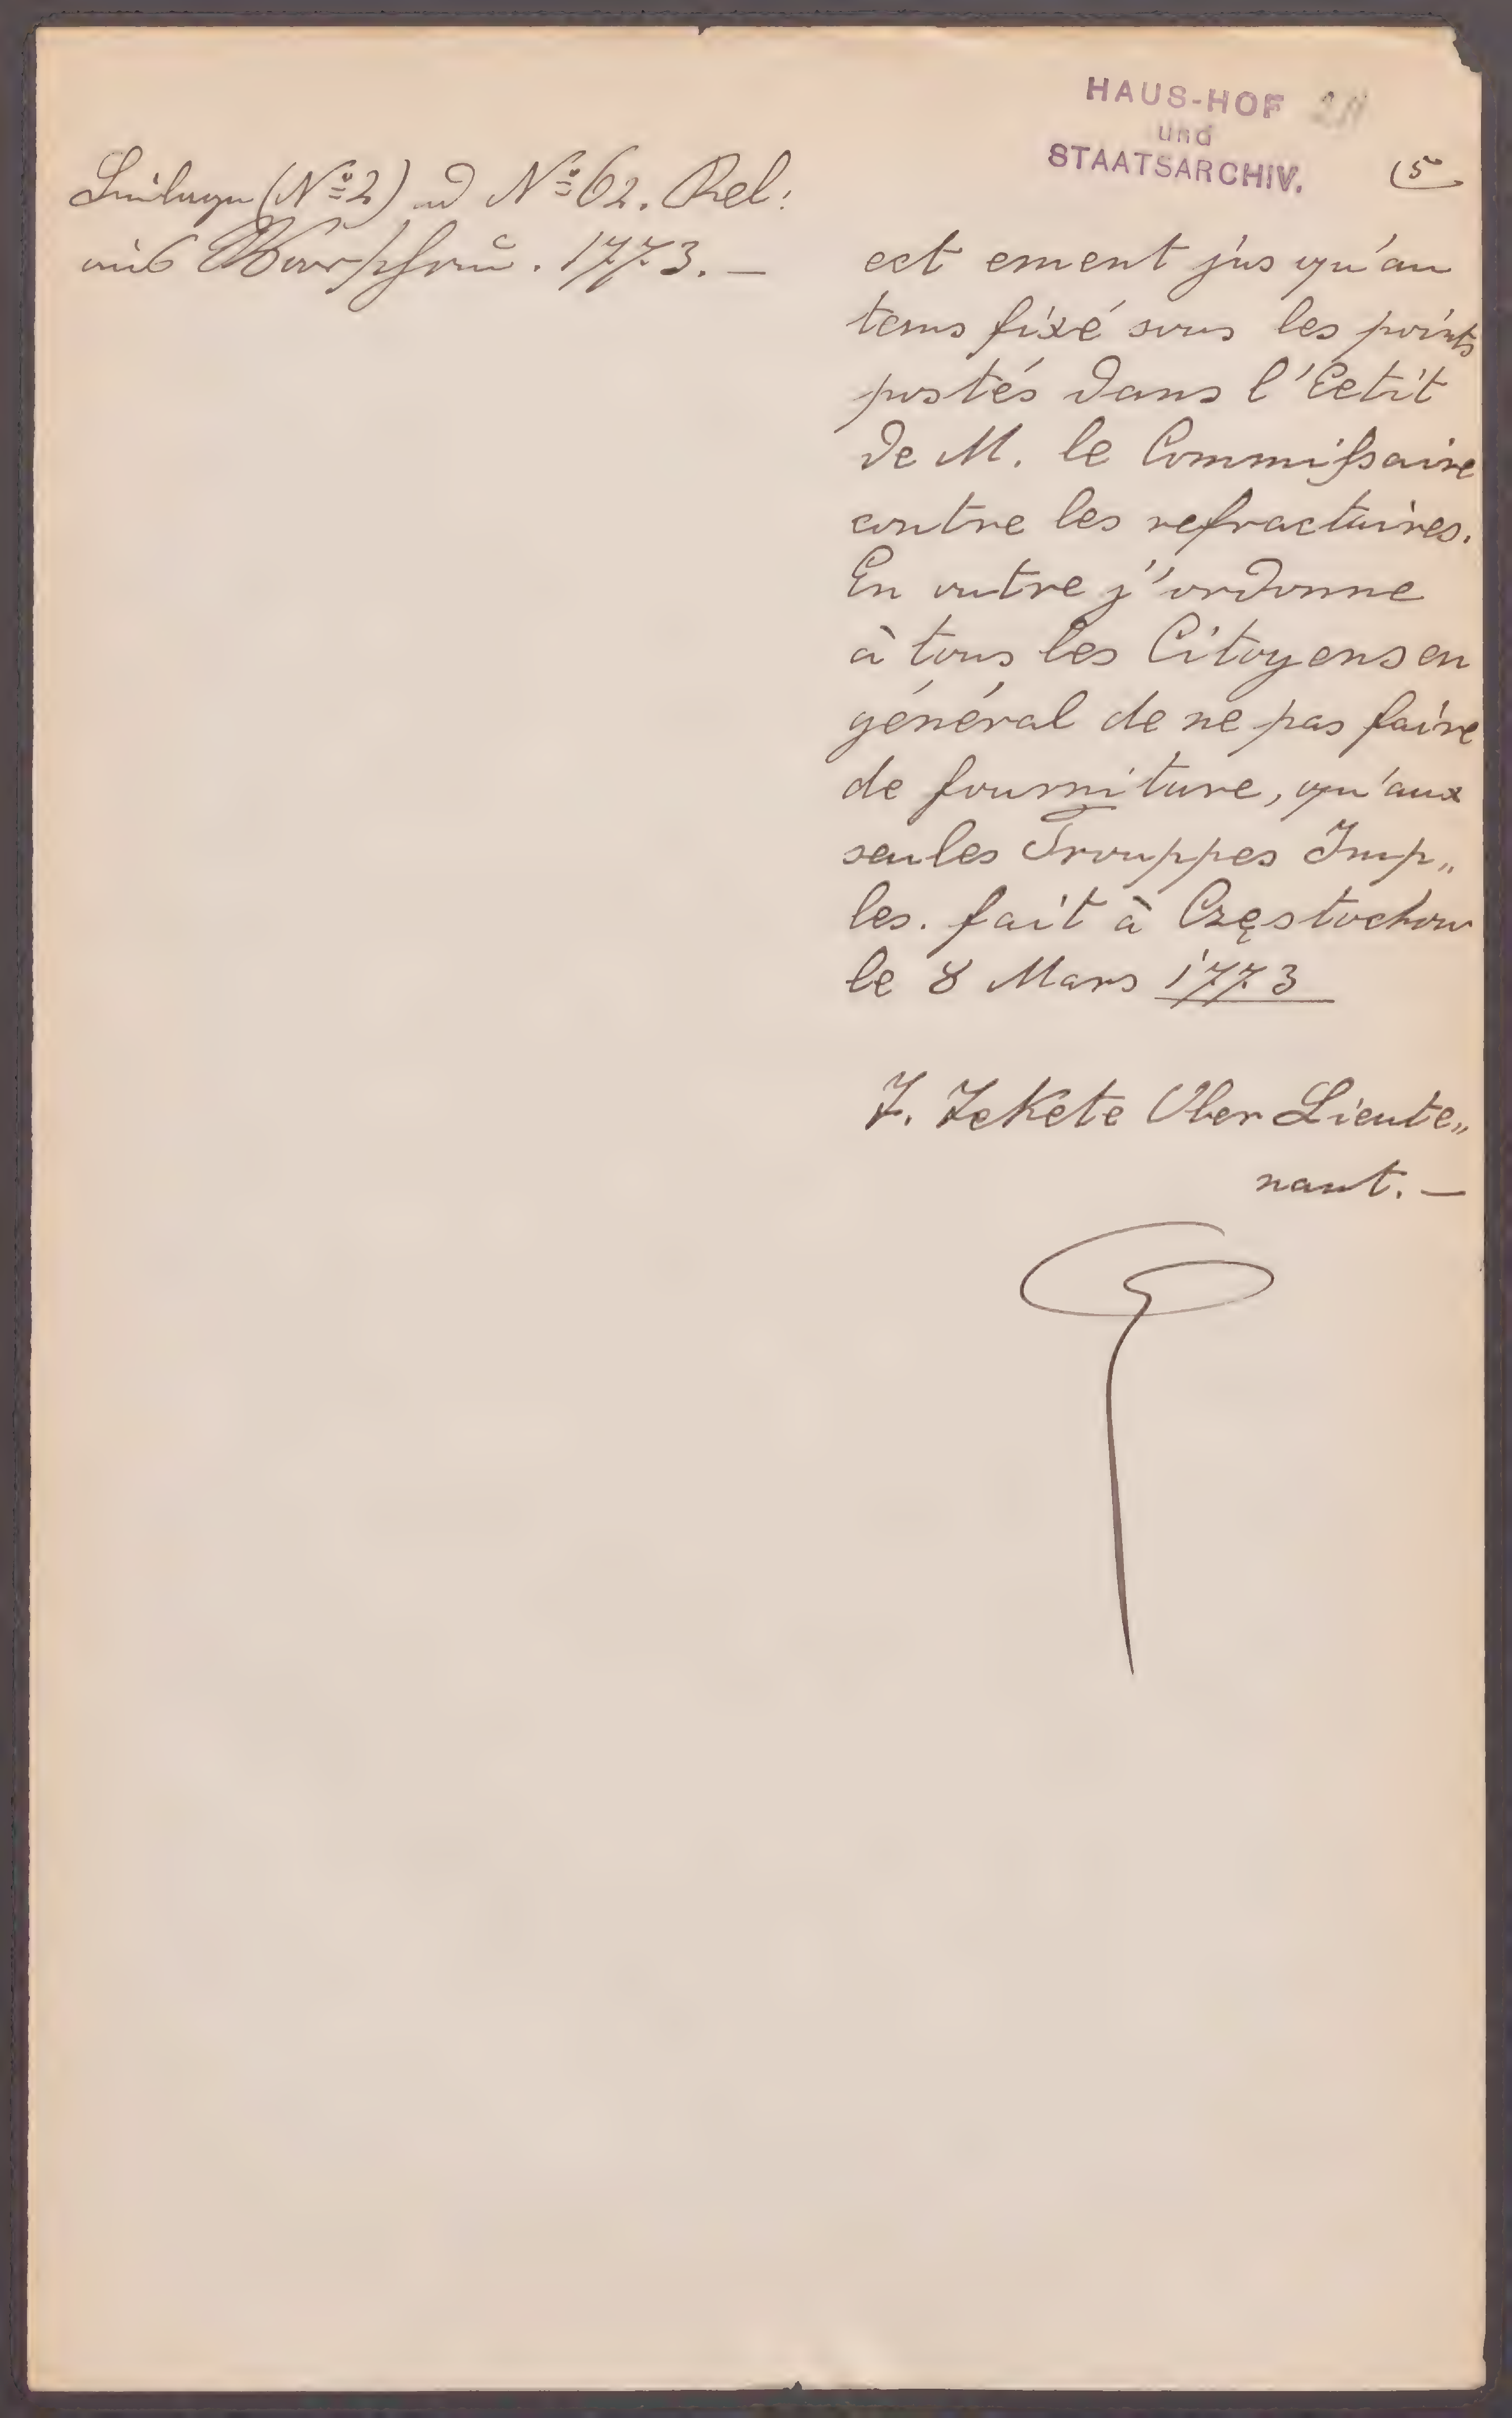 HAUS-HOF
und
STAATSARCHIV.
(5
Beilage (No 2) ad No 62. Rel:
aus Warschau. 1773. —
ect ement jus qu'au
tems fixé sous les points
postés dans l'Ectit
de M. le Commissaire
contre les refractaires.
En outre j'ordonne
à tous les Citoyens en
général de ne pas faire
de fourniture, qu'aux
seules Trouppes Imp„
les. fait à Częstochow
le 8 Mars 1773
F. Fekete Ober Lieute„
nant. —